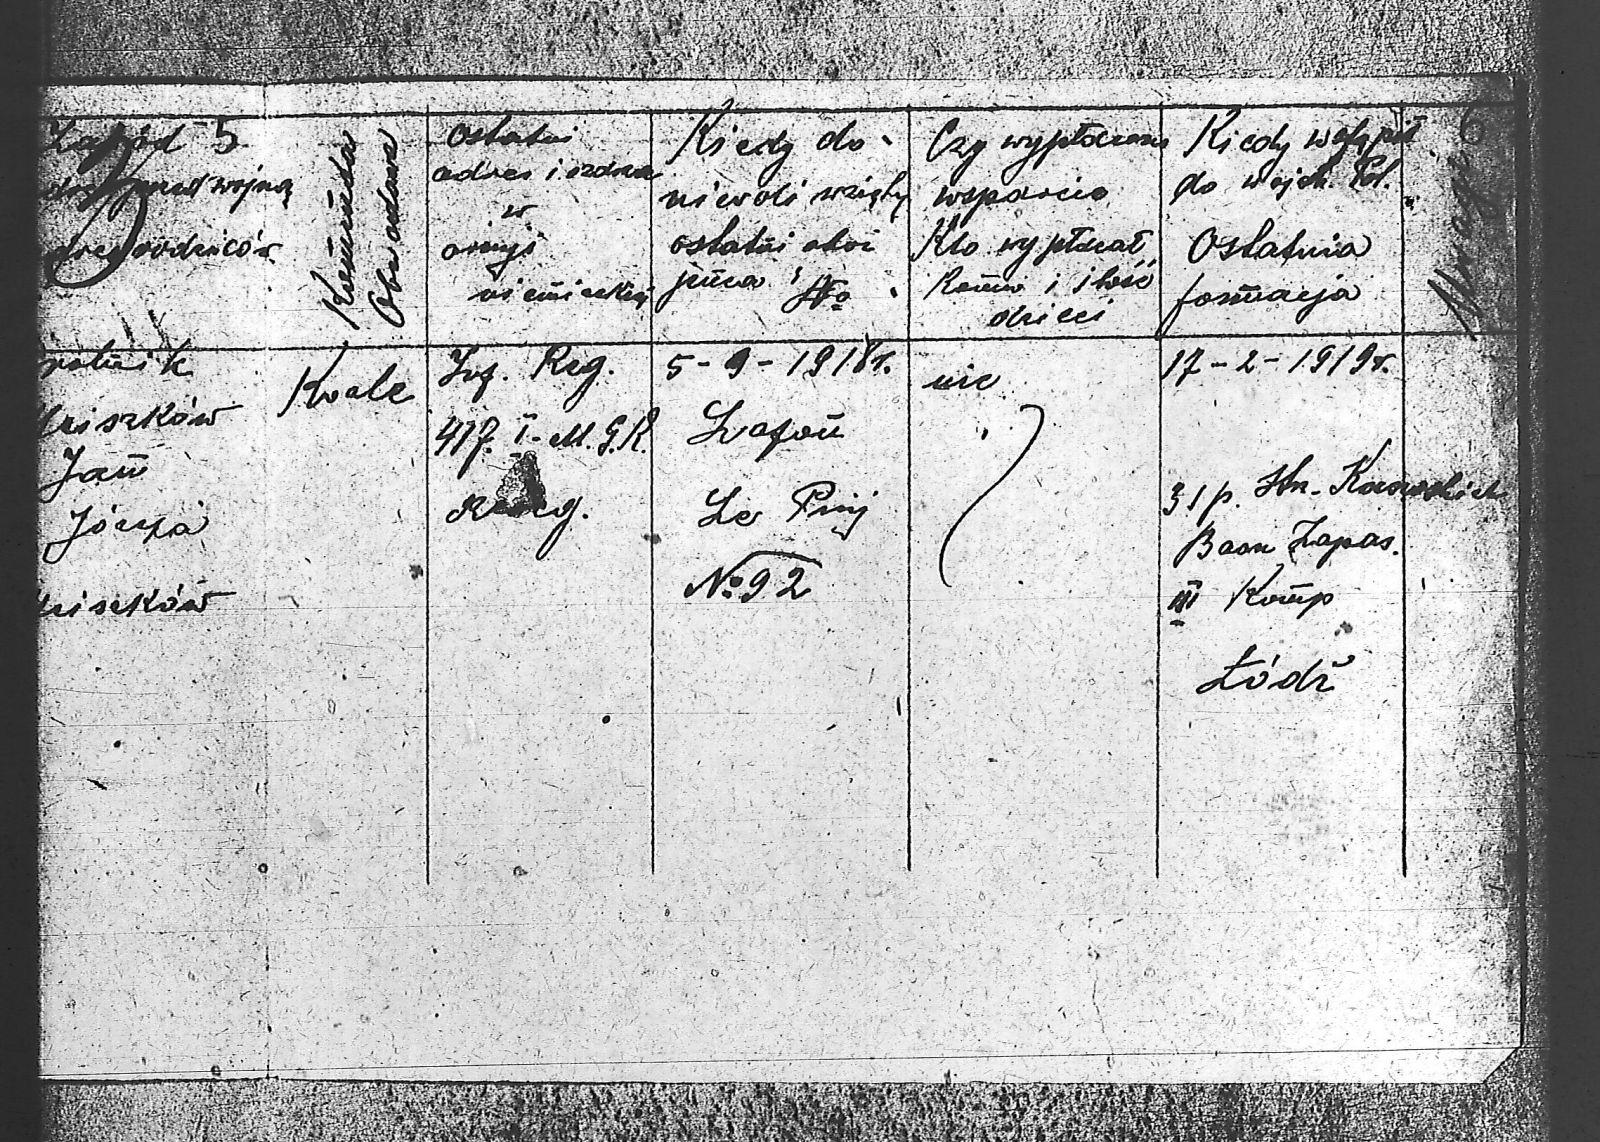 Zawód 5
przed wojną
adres rodziców
Komenda
Obwodowa
Ostatni
adres i odznaka
w
armji
niemieckiej
Kiedy do
niewoli wzięty
ostatni obóz
jeńca i No
Czy wypłacano
wsparcie
Kto wypłacał
Komu i ilość
dzieci
Kiedy wstąpił
do wojsk. Pol.
Ostatnia
formacja
Uwagi
6
rolnik
riszków
Jan
Józefa
riszków
Koale
Inf. Reg.
417. I- M.G.K.
5-9-1918r.
Lafou
Le Puij
No 92
nie
17-2-1919r.
31 p. Str. Kaniowskich
Baon Zapas.
III Komp
Łódź